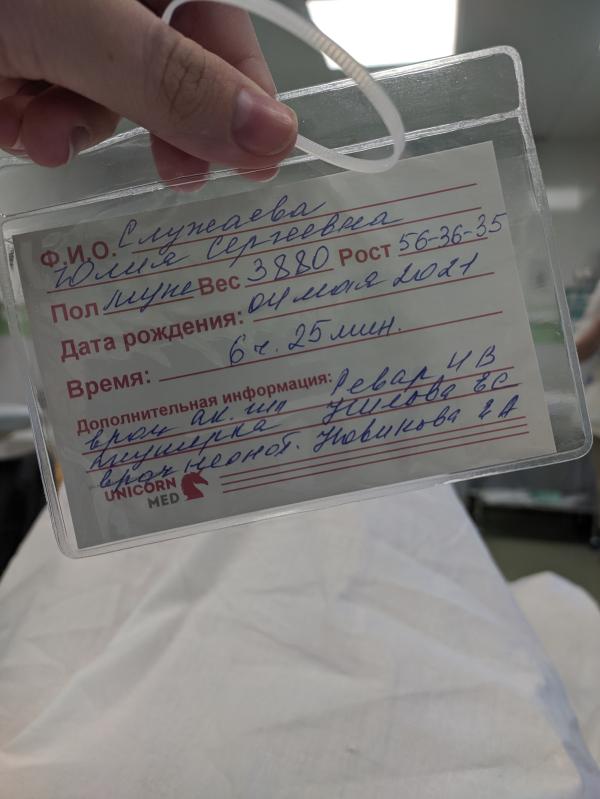 Ф.И.О. Служаева
Юлия Сергеевна
Пол муже Вес 3880 Рост 56-36-35
Дата рождения: 04 мая 2021
Время: 6 ч. 25 мин.
Дополнительная информация:
врач ак. гин Ревар И В
акушерка Жилова ЕС
врач неонат. Новикова Е А
UNICORN
MED